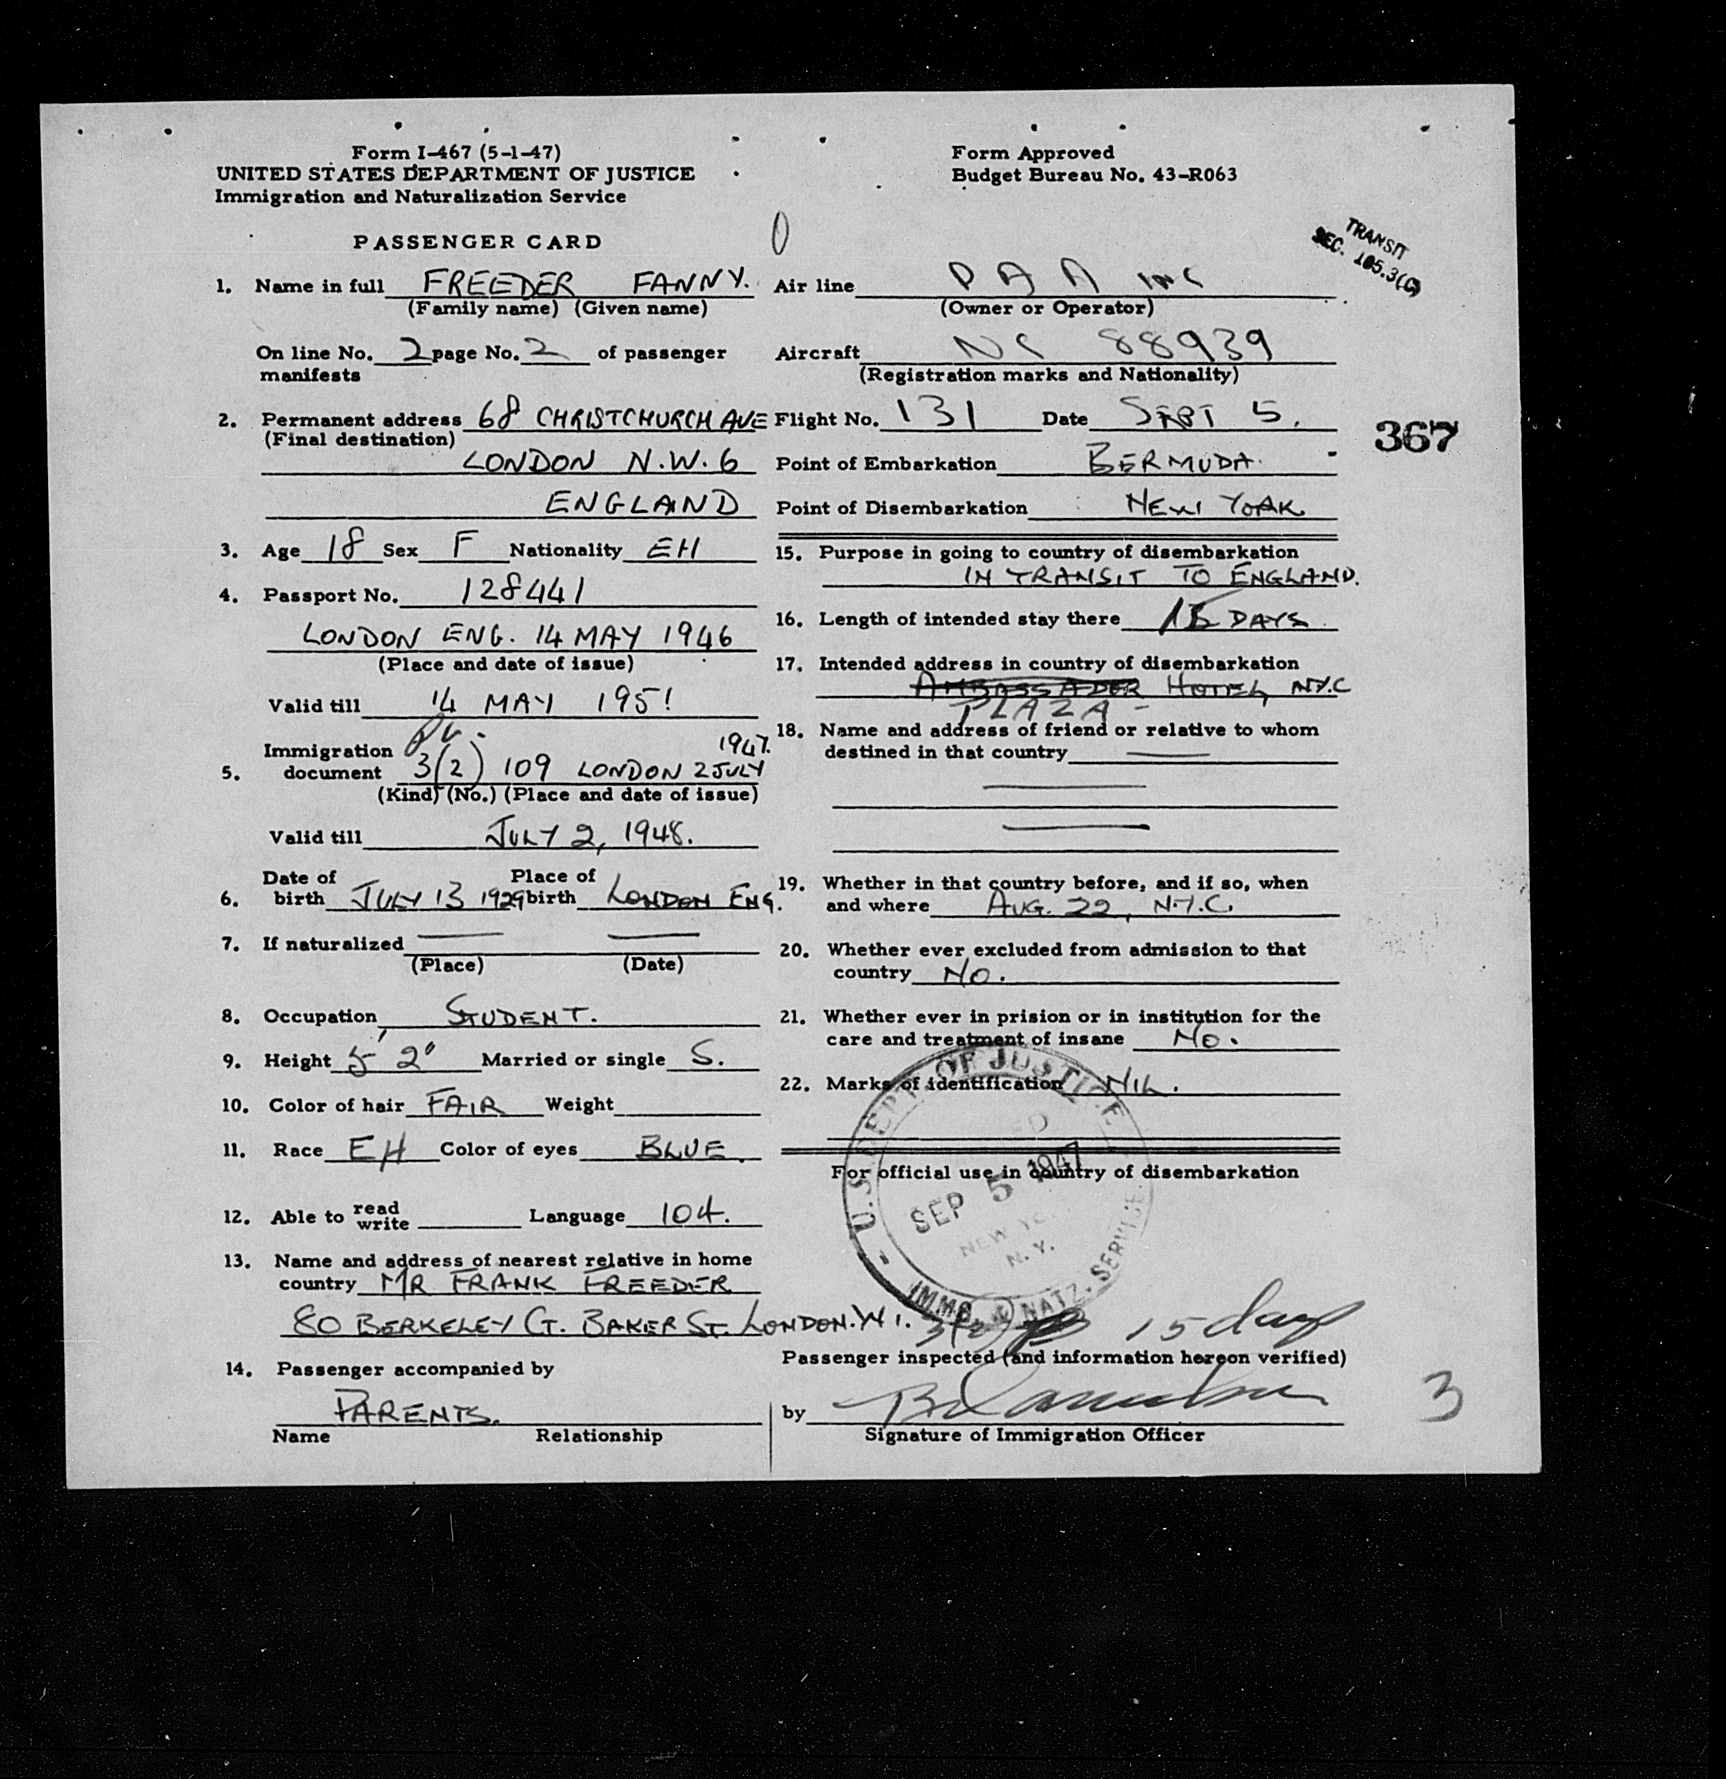 Form I-467 (5-1-47)
UNITED STATES DEPARTMENT OF JUSTICE
Immigration and Naturalization Service
PASSENGER CARD
Form Approved
Budget Bureau No. 43-R063
TRANSIT
SEC. 105.3(C)
0
1. Name in full FREEDER FANNY.
(Family name) (Given name)
On line No. 2 page No. 2 of passenger
manifests
2. Permanent address 68 CHRISTCHURCH AVE
(Final destination)
LONDON N.W.6
ENGLAND
3. Age 18 Sex F Nationality EH
4. Passport No. 128441
LONDON ENG. 14 MAY 1946
(Place and date of issue)
Valid till 14 MAY 1951
1947.
Immigration
5. document 3(2) 109 LONDON 2 JULY
(Kind) (No.) (Place and date of issue)
Valid till JULY 2, 1948.
Date of Place of
6. birth JULY 13 1929 birth LONDON ENG.
7. If naturalized
(Place) (Date)
8. Occupation STUDENT.
9. Height 5' 2" Married or single S.
10. Color of hair FAIR Weight
11. Race EH Color of eyes BLUE.
12. Able to read write Language 104.
13. Name and address of nearest relative in home
country MR FRANK FREEDER
80 BERKELEY CT. BAKER ST. LONDON.W1.
14. Passenger accompanied by
PARENTS.
Name Relationship
Air line P A A INC
(Owner or Operator)
Aircraft NC 88939
(Registration marks and Nationality)
Flight No. 131 Date SEPT 5.
367
Point of Embarkation BERMUDA.
Point of Disembarkation NEW YORK
15. Purpose in going to country of disembarkation
IN TRANSIT TO ENGLAND.
16. Length of intended stay there 15 DAYS
17. Intended address in country of disembarkation
AMBASSADER HOTEL, NYC
PLAZA -
18. Name and address of friend or relative to whom
destined in that country
19. Whether in that country before, and if so, when
and where AUG. 22, N.Y.C.
20. Whether ever excluded from admission to that
country NO.
21. Whether ever in prision or in institution for the
care and treatment of insane NO.
22. Marks of identification NIL.
For official use in country of disembarkation
U.S. DEPT. OF JUSTICE
SEP 5 1947
NEW YORK
N.Y.
IMMG. & NATZ. SERVICE
3(2) 15 days
Passenger inspected (and information hereon verified)
by
Signature of Immigration Officer
3